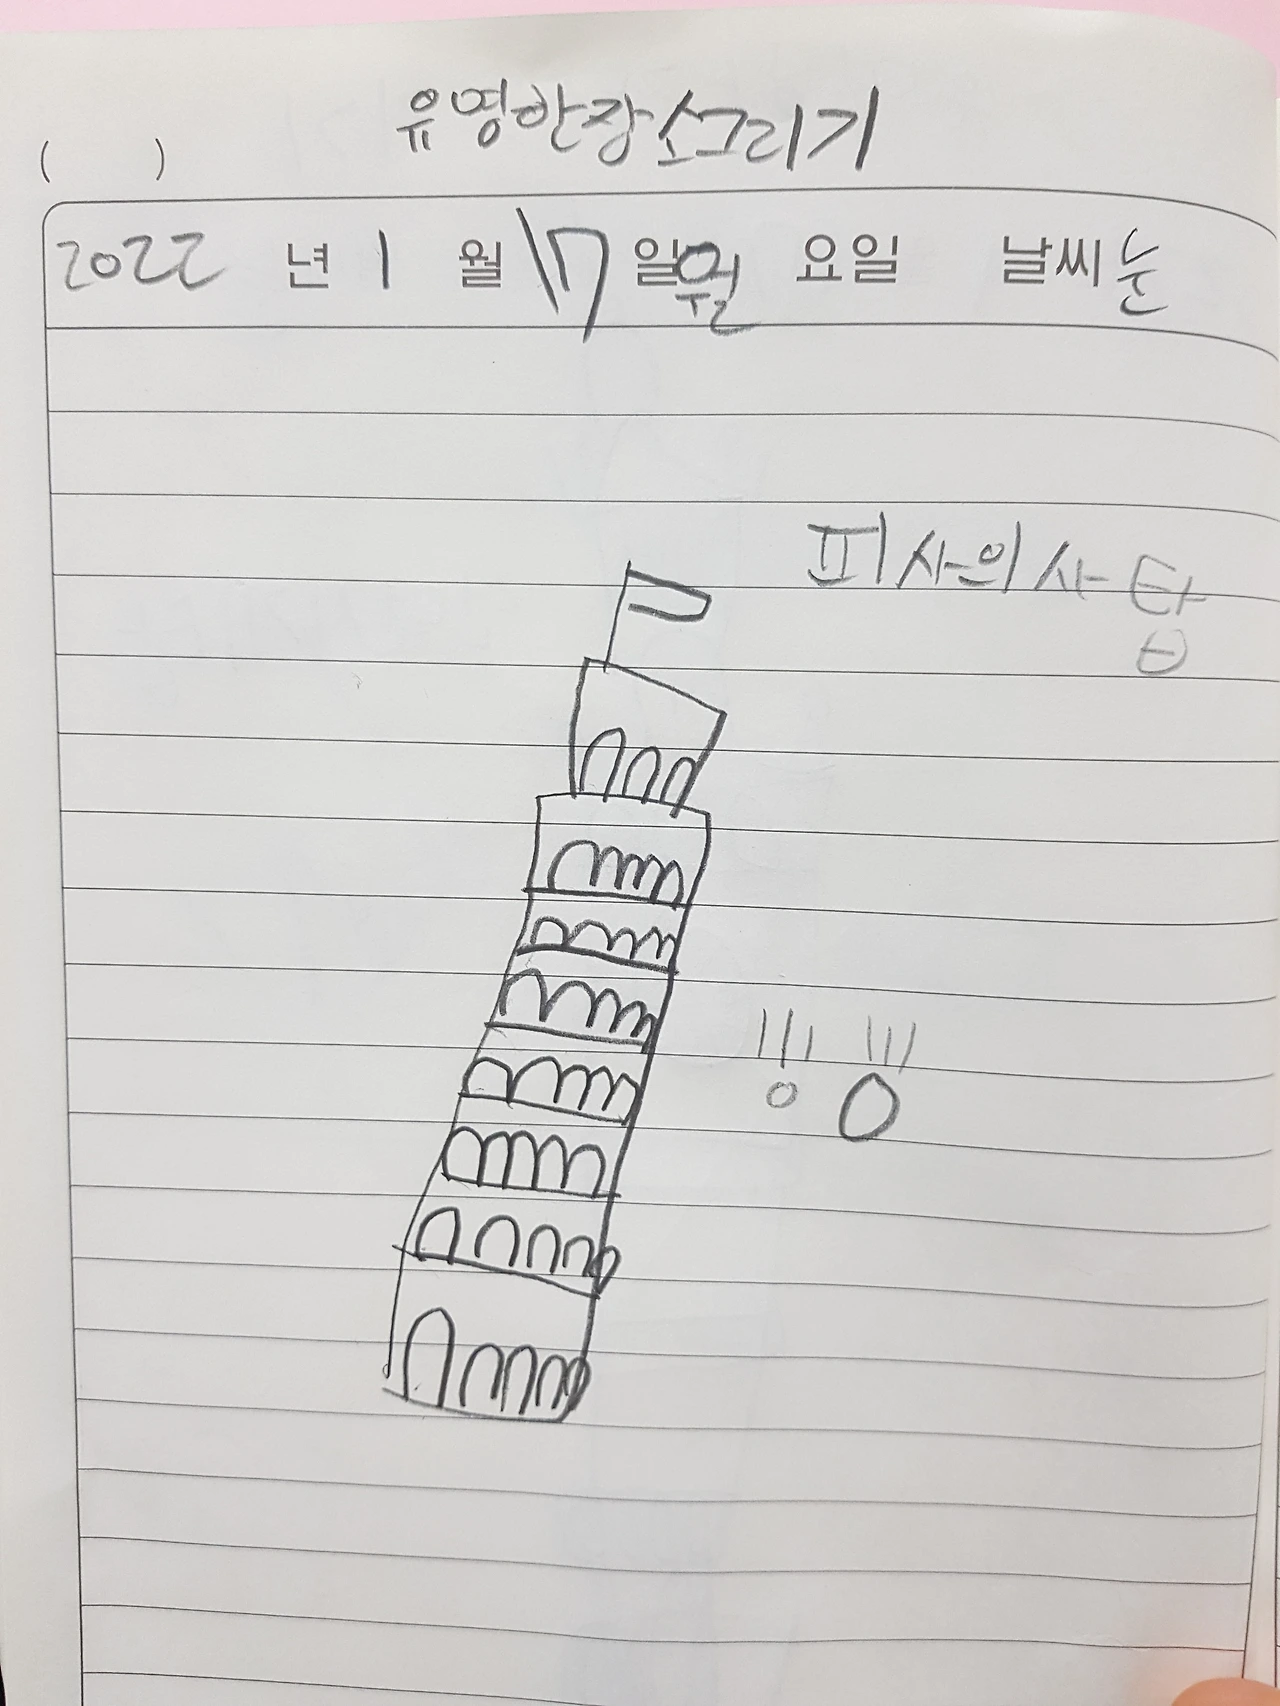 유영한장소그리기
(  )
2022 년 1 월 17 일 월 요일 날씨 눈
피사의사탑